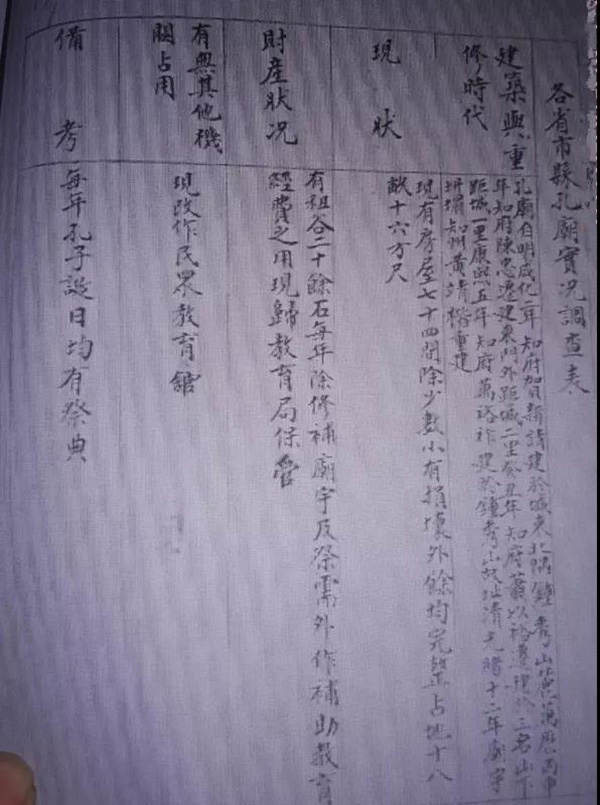 各省市縣孔廟實況調查表
建築與重
修時代
孔廟自明成化二年知府賀新請建於城東北隅鐘秀山麓萬曆丙申
年知府陳忠遷建東門外距城二里癸丑年知府蕭以裕遷建於三台山下
距城一里康熙五年知府萬裕祚建於鐘秀山故址清光緒十二年廟宇
坍壞知州黃靖楷重建
現狀
現有房屋七十四間除少數小有損壞外餘均完整占地十八
畝十六方尺
財產狀況
有租谷二十餘石每年除修補廟宇及祭需外作補助教育
經費之用現歸教育局保管
有無其他機
關占用
現改作民眾教育館
備考
每年孔子誕日均有祭典